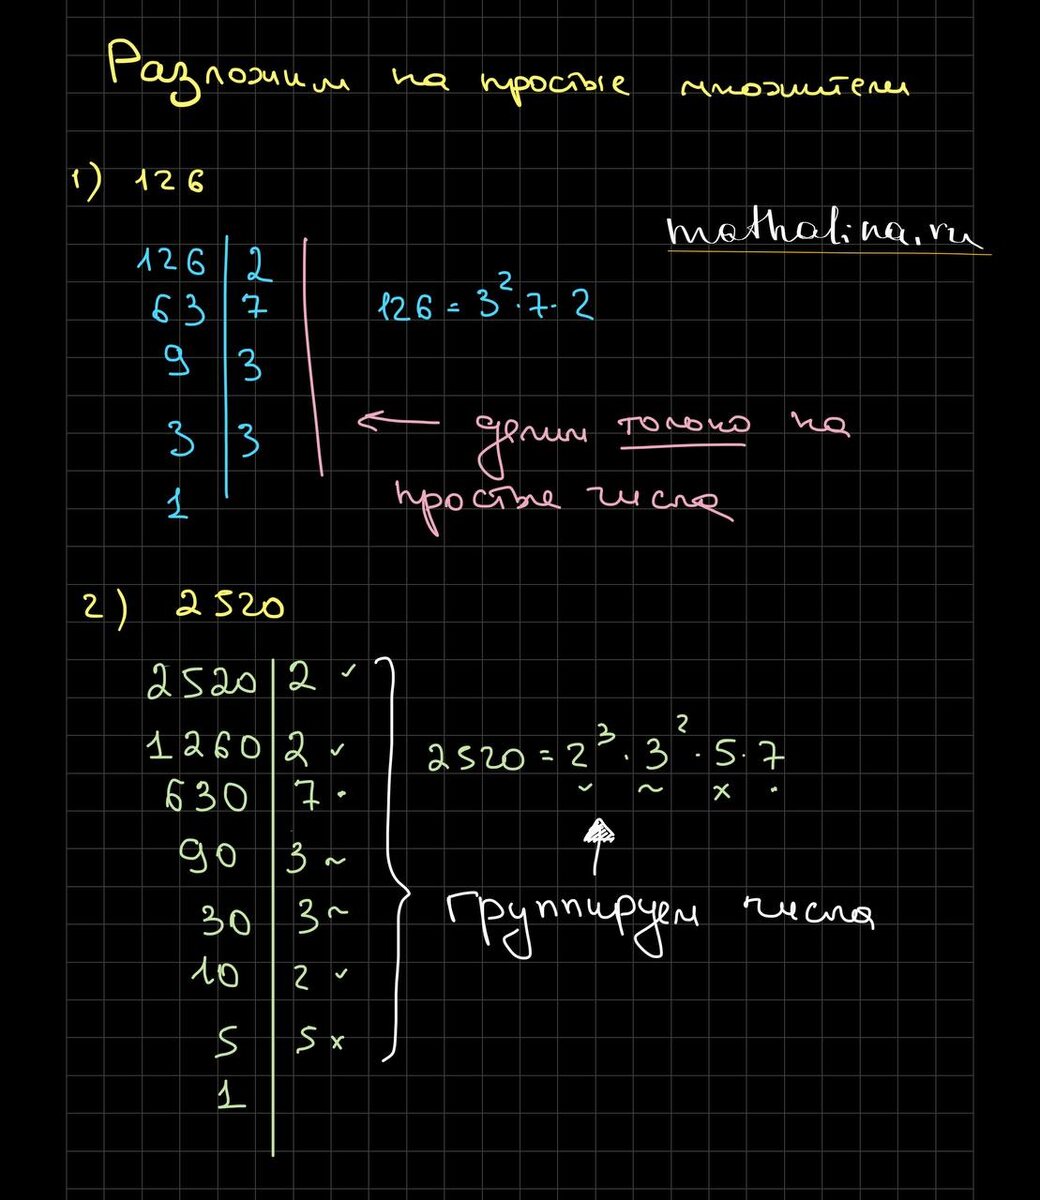 Разложим на простые множители
1) 126
mathalina.ru
126 | 2
63 | 7
9 | 3
3 | 3
1
126 = 3²·7·2
← делим только на
простые числа
2) 2520
2520 | 2 ✓
1260 | 2 ✓
630 | 7 ·
90 | 3 ~
30 | 3 ~
10 | 2 ✓
5 | 5 x
1
2520 = 2³·3²·5·7
✓ ~ x ·
Группируем числа